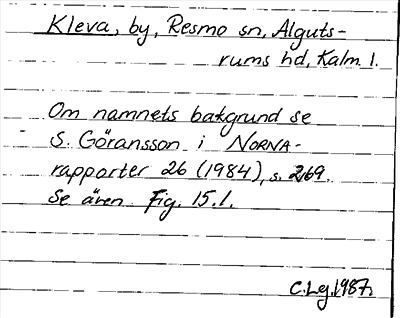 Kleva, by, Resmo sn, Alguts-
rums hd, Kalm l.
Om namnets bakgrund se
S. Göransson i NORNA-
rapporter 26 (1984), s. 269.
Se även Fig. 15.1.
C.Lg. 1987.